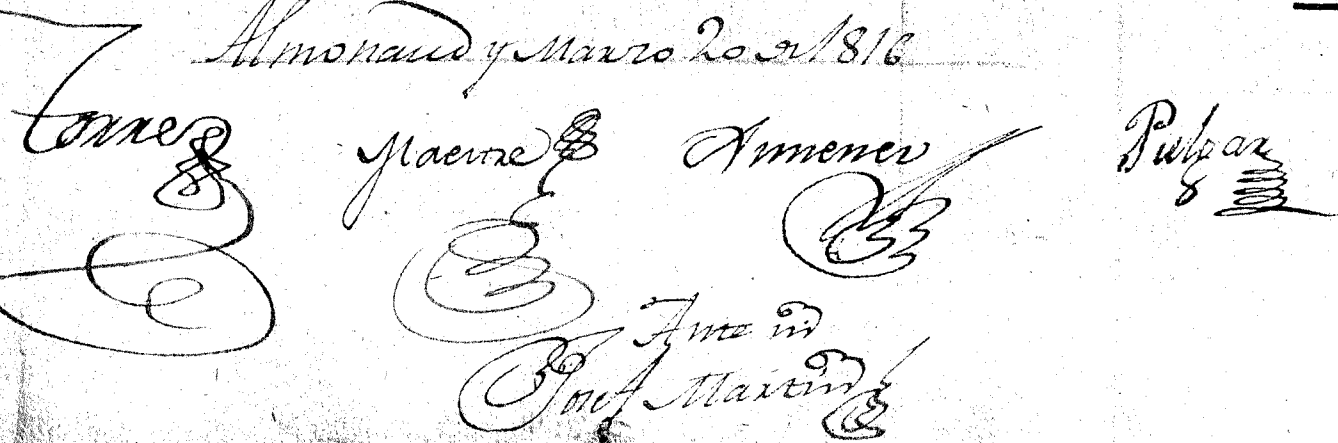 Almonacid y Marzo 20 de 1816
Torres Maestre Ximenez Pulgar
Ante mi
Josef Martin